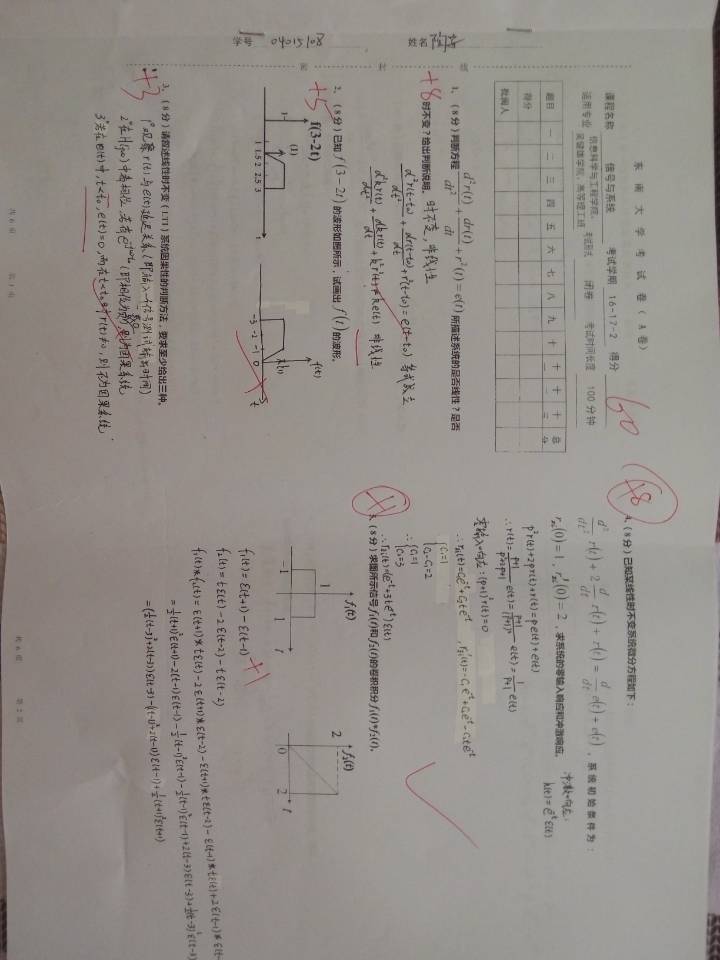 东南大学考试卷（A卷）
60
课程名称 信号与系统 考试学期 16-17-2 得分
适用专业 信息科学与工程学院、吴健雄学院、高等理工班 考试形式 闭卷 考试时间长度 100 分钟
题目 一 二 三 四 五 六 七 八 九 十 十一 十二 十三 总分
得分
批阅人
1、（8分）判断方程 d²r(t)/dt² + dr(t)/dt + r²(t) = e(t) 所描述系统的是否线性？是否
+8
时不变？给出判断说明。 时不变，非线性
d²r(t-t₀)/dt² + dr(t-t₀)/dt + r²(t-t₀) = e(t-t₀) 等式成立
d²kr(t)/dt² + dkr(t)/dt + k²r²(t) ≠ ke(t) 非线性
2、（8分）已知 f(3-2t) 的波形如图所示，试画出 f(t) 的波形。
+5
f(3-2t)
(1)
1
1 1.5 2 2.5 3 t
f(t)
(1)
-3 -2 -1 0 t
3、（8分）请叙述线性时不变（LTI）系统因果性的判断方法，要求至少给出三种。
+3
1° 观察 r(t) 与 e(t) 延迟关系（即输入一个信号测试输出时间）
2° 在 H(jω) 中看相位，若有 e^-jωt₀（即相位为负），则为因果系统
3° 若在 e(t) 中，t<t₀，e(t)=0，而在 t<t₀ 时 r(t)≠0，则不为因果系统
共 6 页 第 1 页
姓名
学号
密
封
线
+8
4、（8分）已知某线性时不变系统微分方程如下：
d²/dt² r(t) + 2 d/dt r(t) + r(t) = d/dt e(t) + e(t)， 系统初始条件为：
r_zi(0) = 1，r'_zi(0) = 2，求系统的零输入响应和冲激响应。
冲激响应：
h(t)=e^-t ε(t)
p²r(t)+2pr(t)+r(t)=pe(t)+e(t)
∴r(t)=(p+1)/(p²+2p+1) e(t)=(p+1)/(p+1)² e(t)=1/(p+1) e(t)
零输入响应：(p+1)²r(t)=0
∴r_zi(t)=C₁e^-t+C₂te^-t，r'_zi(t)=-C₁e^-t+C₂e^-t-C₂te^-t
{C₁=1
C₂-C₁=2
∴{C₁=1
C₂=3
∴r_zi(t)=(e^-t+3te^-t)ε(t)
+1
5、（8分）求图所示信号 f₁(t) 和 f₂(t) 的卷积积分 f₁(t)*f₂(t)。
f₁(t)
1
-1 1 t
f₂(t)
2
0 2 t
f₁(t)=ε(t+1)-ε(t-1) +1
f₂(t)=tε(t)-2ε(t-2)-tε(t-2)
f₁(t)*f₂(t)=ε(t+1)*tε(t)-2ε(t+1)*ε(t-2)-ε(t+1)*tε(t-2)-ε(t-1)*tε(t)+2ε(t-1)*ε(t-
=½(t+1)²ε(t+1)-2(t-1)ε(t-1)-½(t-1)²ε(t-1)-½(t-1)²ε(t-1)+2(t-3)ε(t-3)+½(t-3)²ε(t-3)
=(½(t-3)²+2(t-3))ε(t-3)-((t-1)²+2(t-1))ε(t-1)+½(t+1)²ε(t+1)
共 6 页 第 2 页